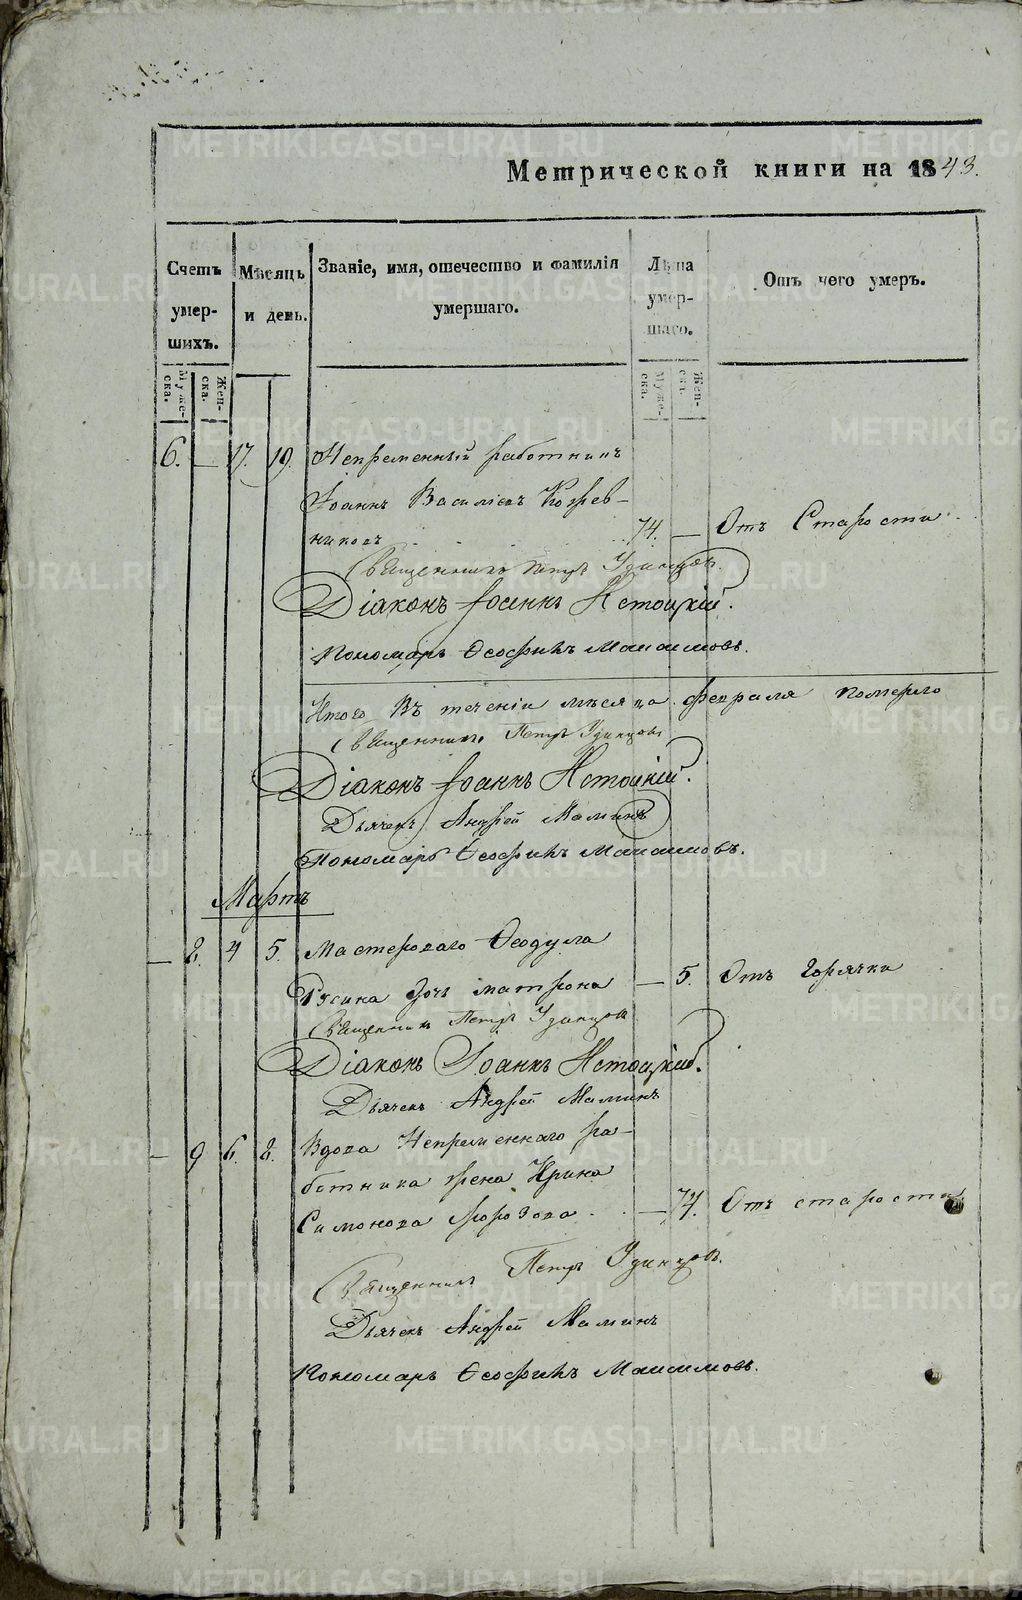 Метрической книги на 1843.
Счетъ умер-шихъ.
Мѣсяць и день.
Званіе, имя, отечество и фамилія умершаго.
Лѣта умер-шаго.
Отъ чего умеръ.
Муже-ска.
Жен-ска.
Муже-ска.
Жен-ска.
6. — 17. 19. Непременный работникъ
Іоаннъ Василіевъ Кожев-
никовъ 74. — Отъ Старости
Священникъ Петръ Удинцовъ.
Діаконъ Іоаннъ Истоцкій.
Пономарь Ѳеофилъ Максимовъ.
Итого Въ теченіи мѣсяца февраля померло
Священникъ Петръ Удинцовъ
Діаконъ Іоаннъ Истоцкій.
Дьячекъ Андрей Маминъ
Пономарь Ѳеофилъ Максимовъ.
Мартъ
— 8. 4 5. Мастероваго Ѳеодула
Русина дочь матрона — 5. Отъ Горячки
Священникъ Петръ Удинцовъ
Діаконъ Іоаннъ Истоцкій.
Дьячекъ Андрей Маминъ
— 9 6. 8. Вдова Непременнаго ра-
ботника жена Ирина
Симонова — 74. Отъ старости
Священникъ Петръ Удинцовъ.
Дьячекъ Андрей Маминъ
Пономарь Ѳеофилъ Максимовъ.
METRIKI.GASO-URAL.RU